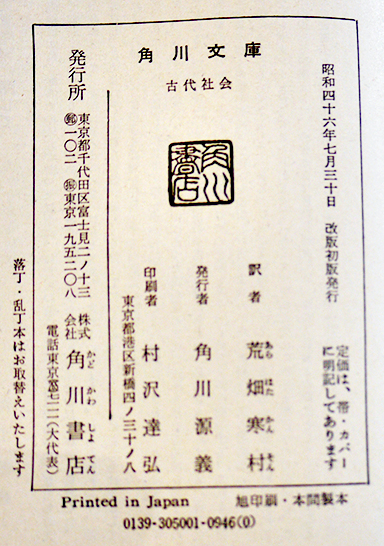 角川文庫
古代社会
角川書店
昭和四十六年七月三十日 改版初版発行
定価は、帯・カバーに明記してあります
訳者 荒畑寒村
あらはたかんそん
発行者 角川源義
印刷者 村沢達弘
東京都港区新橋四ノ三十ノ八
発行所
東京都千代田区富士見二ノ十三
㊞一〇二 ㊞東京一九五二〇八
株式会社 角川書店
かどかわしょてん
(大代表)
落丁・乱丁本はお取替えいたします
Printed in Japan 旭印刷・本間製本
0139-305001-0946(0)